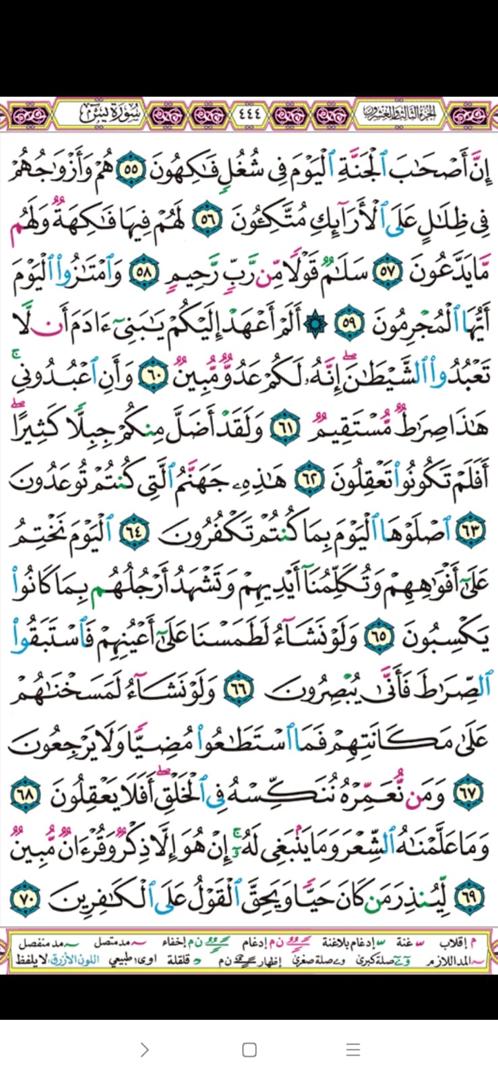 الجزء الثالث والعشرون ٤٤٤ سورة يس
إِنَّ أَصْحَٰبَ ٱلْجَنَّةِ ٱلْيَوْمَ فِى شُغُلٍ فَٰكِهُونَ ٥٥ هُمْ وَأَزْوَٰجُهُمْ
فِى ظِلَٰلٍ عَلَى ٱلْأَرَآئِكِ مُتَّكِـُٔونَ ٥٦ لَهُمْ فِيهَا فَٰكِهَةٌ وَلَهُم
مَّا يَدَّعُونَ ٥٧ سَلَٰمٌ قَوْلًا مِّن رَّبٍّ رَّحِيمٍ ٥٨ وَٱمْتَٰزُوا۟ ٱلْيَوْمَ
أَيُّهَا ٱلْمُجْرِمُونَ ٥٩ ۞ أَلَمْ أَعْهَدْ إِلَيْكُمْ يَٰبَنِىٓ ءَادَمَ أَن لَّا
تَعْبُدُوا۟ ٱلشَّيْطَٰنَ ۖ إِنَّهُۥ لَكُمْ عَدُوٌّ مُّبِينٌ ٦٠ وَأَنِ ٱعْبُدُونِى ۚ
هَٰذَا صِرَٰطٌ مُّسْتَقِيمٌ ٦١ وَلَقَدْ أَضَلَّ مِنكُمْ جِبِلًّا كَثِيرًا ۖ
أَفَلَمْ تَكُونُوا۟ تَعْقِلُونَ ٦٢ هَٰذِهِۦ جَهَنَّمُ ٱلَّتِى كُنتُمْ تُوعَدُونَ
٦٣ ٱصْلَوْهَا ٱلْيَوْمَ بِمَا كُنتُمْ تَكْفُرُونَ ٦٤ ٱلْيَوْمَ نَخْتِمُ
عَلَىٰٓ أَفْوَٰهِهِمْ وَتُكَلِّمُنَآ أَيْدِيهِمْ وَتَشْهَدُ أَرْجُلُهُم بِمَا كَانُوا۟
يَكْسِبُونَ ٦٥ وَلَوْ نَشَآءُ لَطَمَسْنَا عَلَىٰٓ أَعْيُنِهِمْ فَٱسْتَبَقُوا۟
ٱلصِّرَٰطَ فَأَنَّىٰ يُبْصِرُونَ ٦٦ وَلَوْ نَشَآءُ لَمَسَخْنَٰهُمْ
عَلَىٰ مَكَانَتِهِمْ فَمَا ٱسْتَطَٰعُوا۟ مُضِيًّا وَلَا يَرْجِعُونَ
٦٧ وَمَن نُّعَمِّرْهُ نُنَكِّسْهُ فِى ٱلْخَلْقِ ۖ أَفَلَا يَعْقِلُونَ ٦٨
وَمَا عَلَّمْنَٰهُ ٱلشِّعْرَ وَمَا يَنۢبَغِى لَهُۥٓ ۚ إِنْ هُوَ إِلَّا ذِكْرٌ وَقُرْءَانٌ مُّبِينٌ
٦٩ لِّيُنذِرَ مَن كَانَ حَيًّا وَيَحِقَّ ٱلْقَوْلُ عَلَى ٱلْكَٰفِرِينَ ٧٠
م إقلاب غنة إدغام بلاغنة ن م إدغام ن م إخفاء مد متصل مد منفصل
المد اللازم صلة كبرى صلة صغرى إظهار ن م قلقلة اوى طبيعي اللون الأزرق لا يلفظ